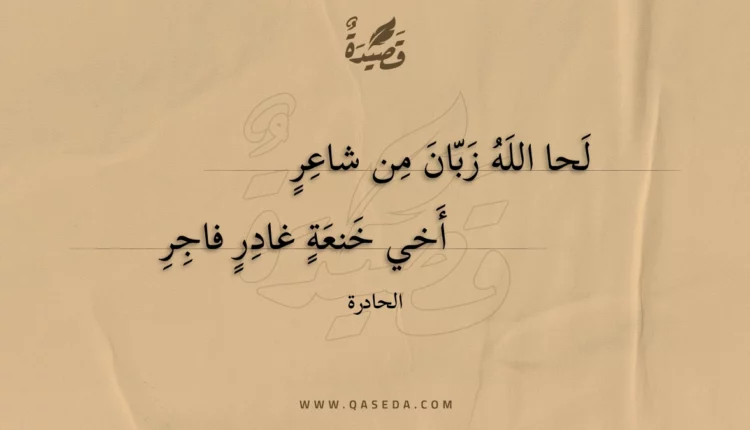 قَصِيْدَةٌ
لَحا اللَهُ زَبّانَ مِن شاعِرٍ
أَخي خَنعَةٍ غادِرٍ فاجِرِ
الحادرة
WWW.QASEDA.COM